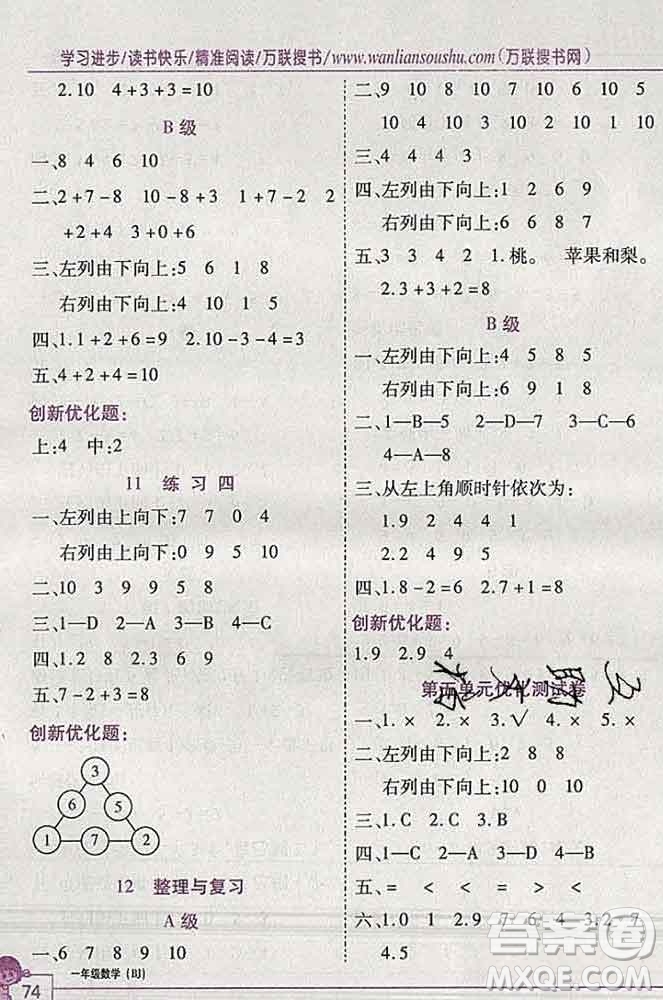 学习进步/读书快乐/精准阅读/万联搜书/www.wanliansoushu.com(万联搜书网)
2.10 4+3+3=10
B 级
一、8 4 6 10
二、2+7-8 10-8+3 1+7-2 2
+2+4 7-2-3
三、左列由下向上:5 6 1 8
右列由下向上:4 10 1 5
四、1.1+2+6=9 2.10-4-3=3
五、4+2+4=10
创新优化题:
上:4 中:2
11 练 习 四
一、左列由上向下:7 7 0 4
右列由上向下:9 5 9
二、10 3 9 9 5 8
三、1—D 2—A 3—C 4—D
四、1.2 2.9 3.8 4.8
五、7-2+3=8
创新优化题:
3
6 5
1 7 2
12 整理与复习
A 级
一、6 7 8 9 10
74
一年级数学 (BJ)
二、9 10 8 10 7 10 6 10 5
10 4 10 3 10 2 10 1 10
三、4 4 4 3
四、左列由下向上:1 2 6 9
右列由下向上:6 8 8 7
五、3 3 4 2 1.桃。 苹果和梨。
2.3+3+2=8
B 级
一、左列由下向上:4 5 8 5
右列由下向上:4 5 8
二、1—B—5 2—D—7 3—C—6
4—A—8
三、从左上角顺时针依次为:
1.9 2 4 4 1
2.2 4 9 5
四、1.8-2=6 2.7+1=8
创新优化题:
1.9 2.9 4
第五单元优化测试卷
一、1.× 2.× 3.✓ 4.× 5.×
二、左列由下向上:2 8 8
右列由下向上:10 0 0
三、1.C 2.C 3.B
四、1—C 2—D 3—B 4—A
五、= < < = > <
六、1.0 1 2.9 7 6 3.2 7
4.5
答案圈
MXQE.COM